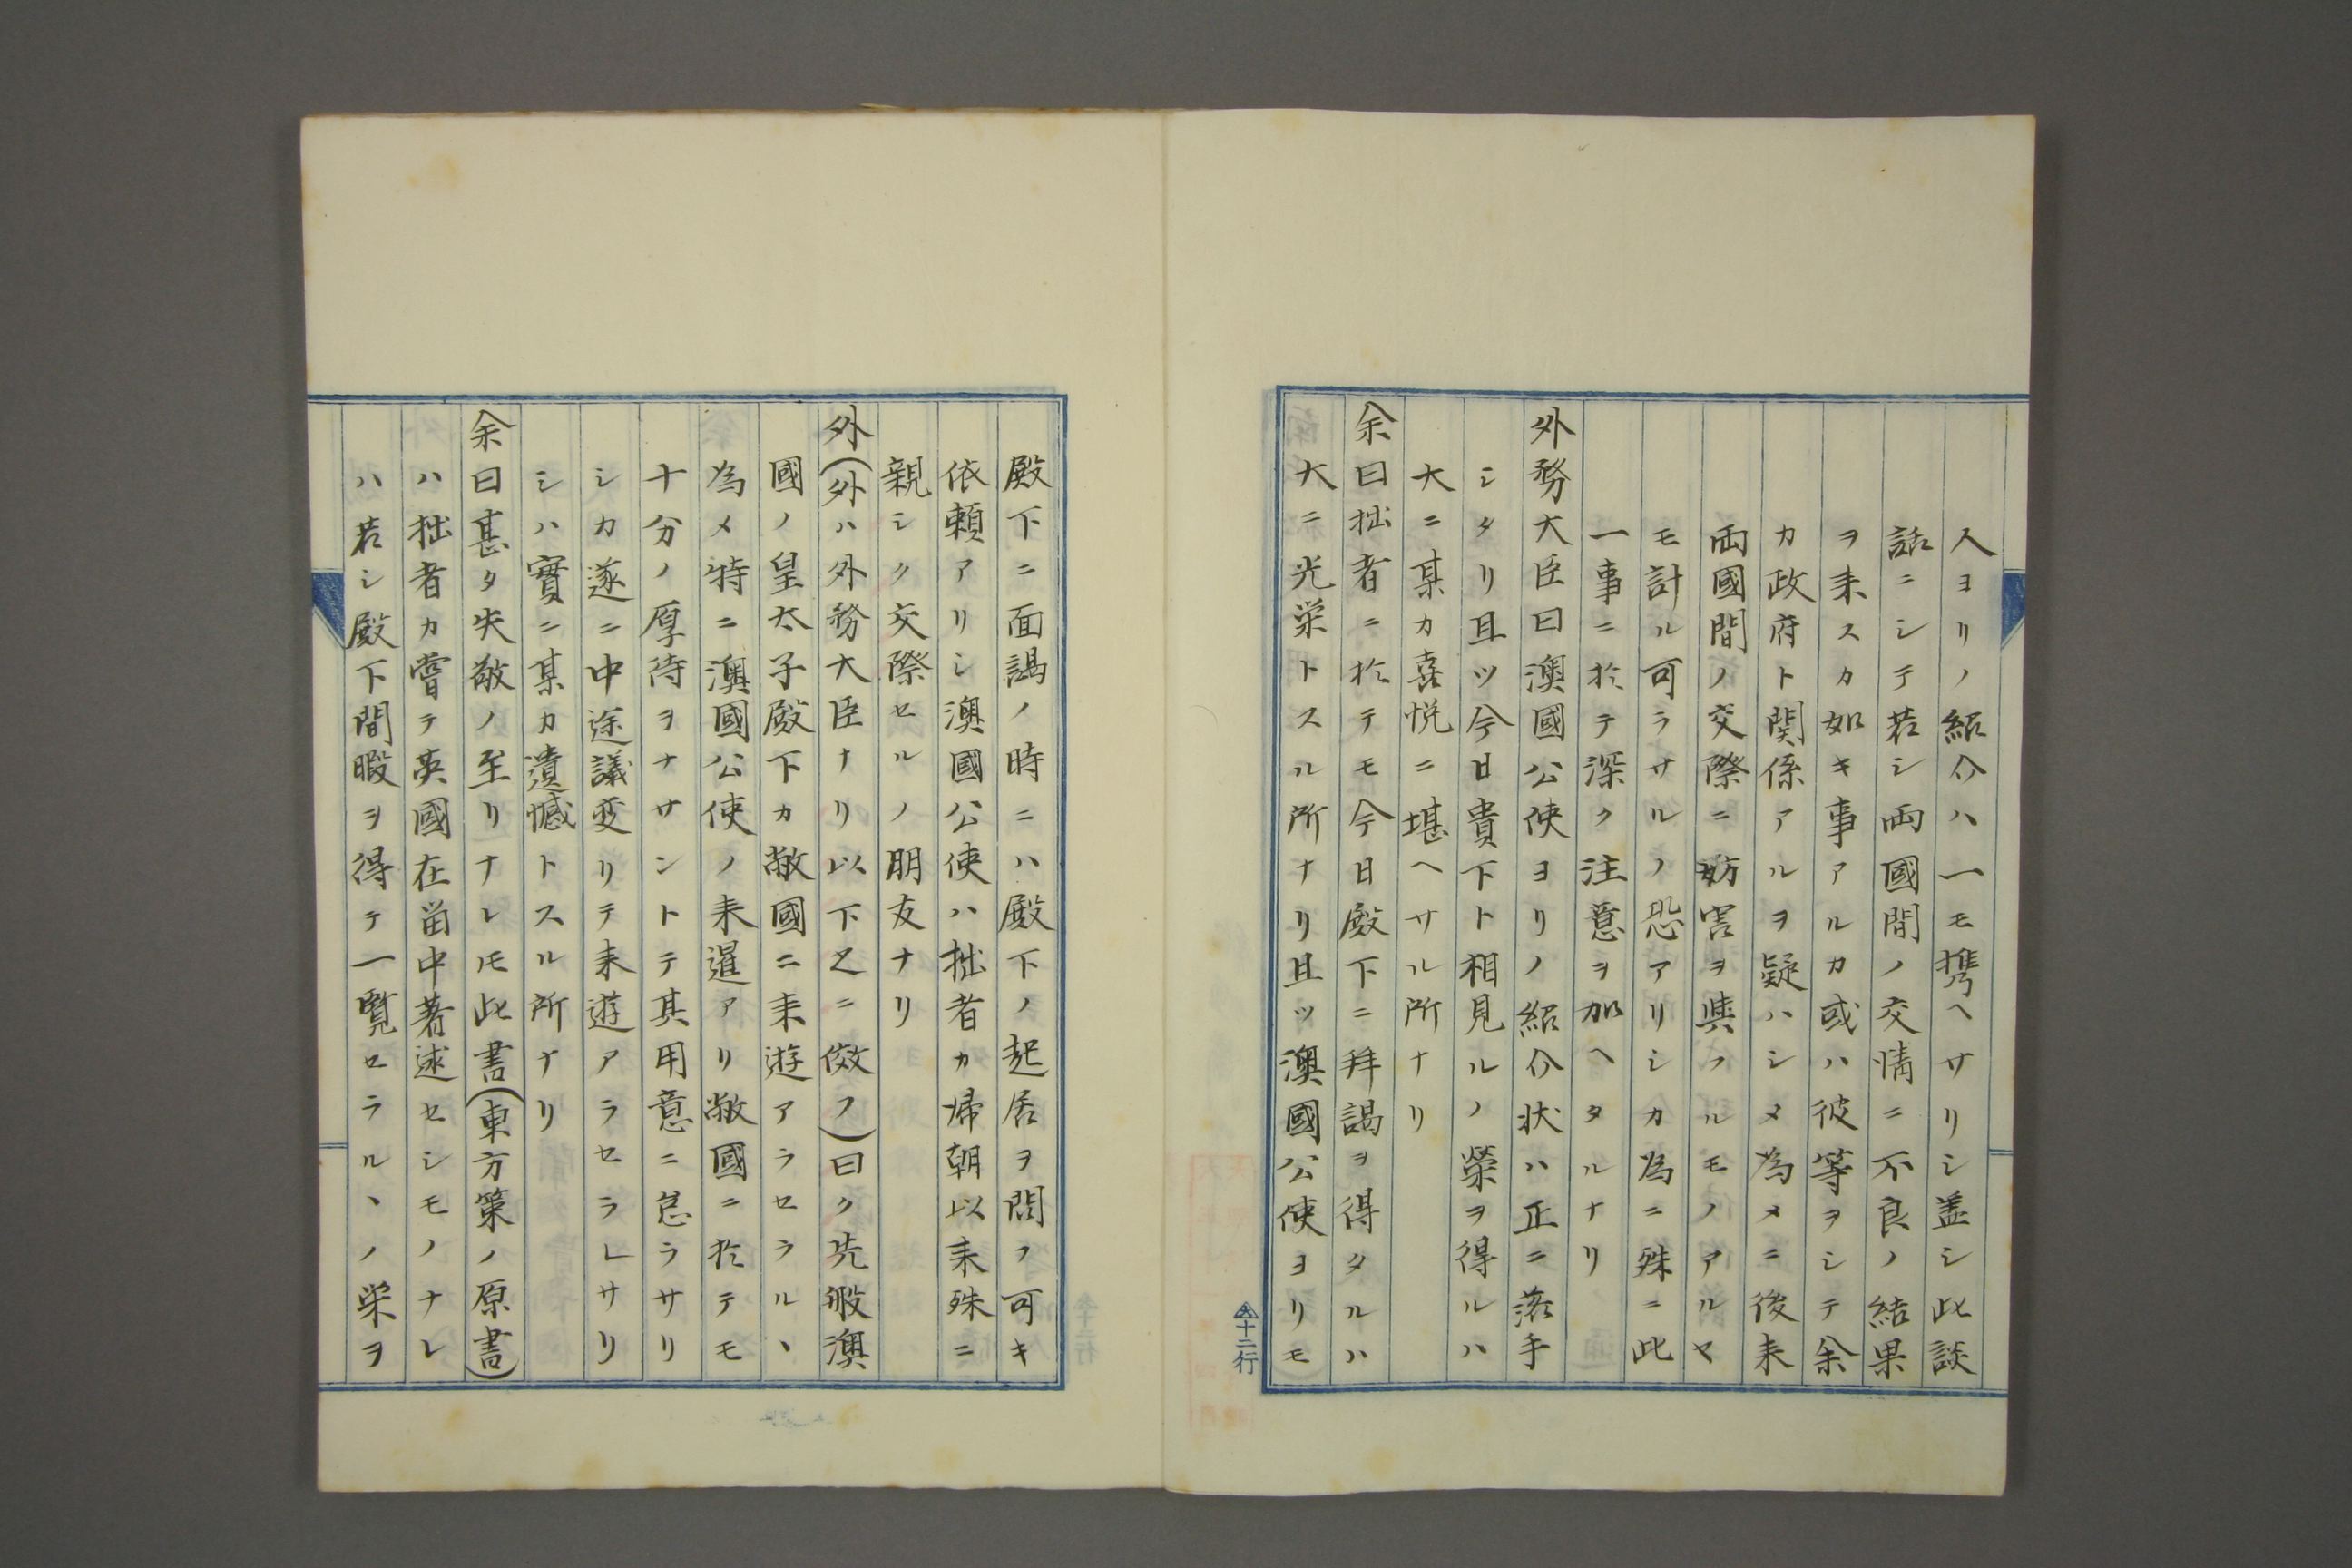 人ヨリノ紹介ハ一モ携ヘサリシ盖シ此談
話ニシテ若シ両國間ノ交情ニ不良ノ結果
ヲ来スカ如キ事アルカ或ハ彼等ヲシテ余
カ政府ト関係アルヲ疑ハシメ為メニ後来
両國間ノ交際ニ妨害ヲ與フルモノアルヤ
モ計ル可ラサルノ恐アリシカ為ニ殊ニ此
一事ニ於テ深ク注意ヲ加ヘタルナリ
外務大臣曰澳國公使ヨリノ紹介状ハ正ニ落手
シタリ且ツ今日貴下ト相見ルノ榮ヲ得ルハ
大ニ某カ喜悦ニ堪ヘサル所ナリ
余曰拙者ニ於テモ今日殿下ニ拜謁ヲ得タルハ
大ニ光栄トスル所ナリ且ツ澳國公使ヨリモ
十二行
殿下ニ面謁ノ時ニハ殿下ノ起居ヲ問フ可キ
依頼アリシ澳國公使ハ拙者カ帰朝以来殊ニ
親シク交際セルノ朋友ナリ
外(外ハ外務大臣ナリ以下之ニ傚フ)曰ク先般澳
國ノ皇太子殿下カ敝國ニ来遊アラセラルヽ
為メ特ニ澳國公使ノ来暹アリ敝國ニ於テモ
十分ノ厚待ヲナサントテ其用意ニ怠ラサリ
シカ遂ニ中途議変リテ来遊アラセラレサリ
シハ實ニ某カ遺憾トスル所ナリ
余曰甚タ失敬ノ至リナレ𪜈此書(東方策ノ原書)
ハ拙者カ嘗テ英國在留中著述セシモノナレ
ハ若シ殿下間暇ヲ得テ一覧セラルヽノ栄ヲ